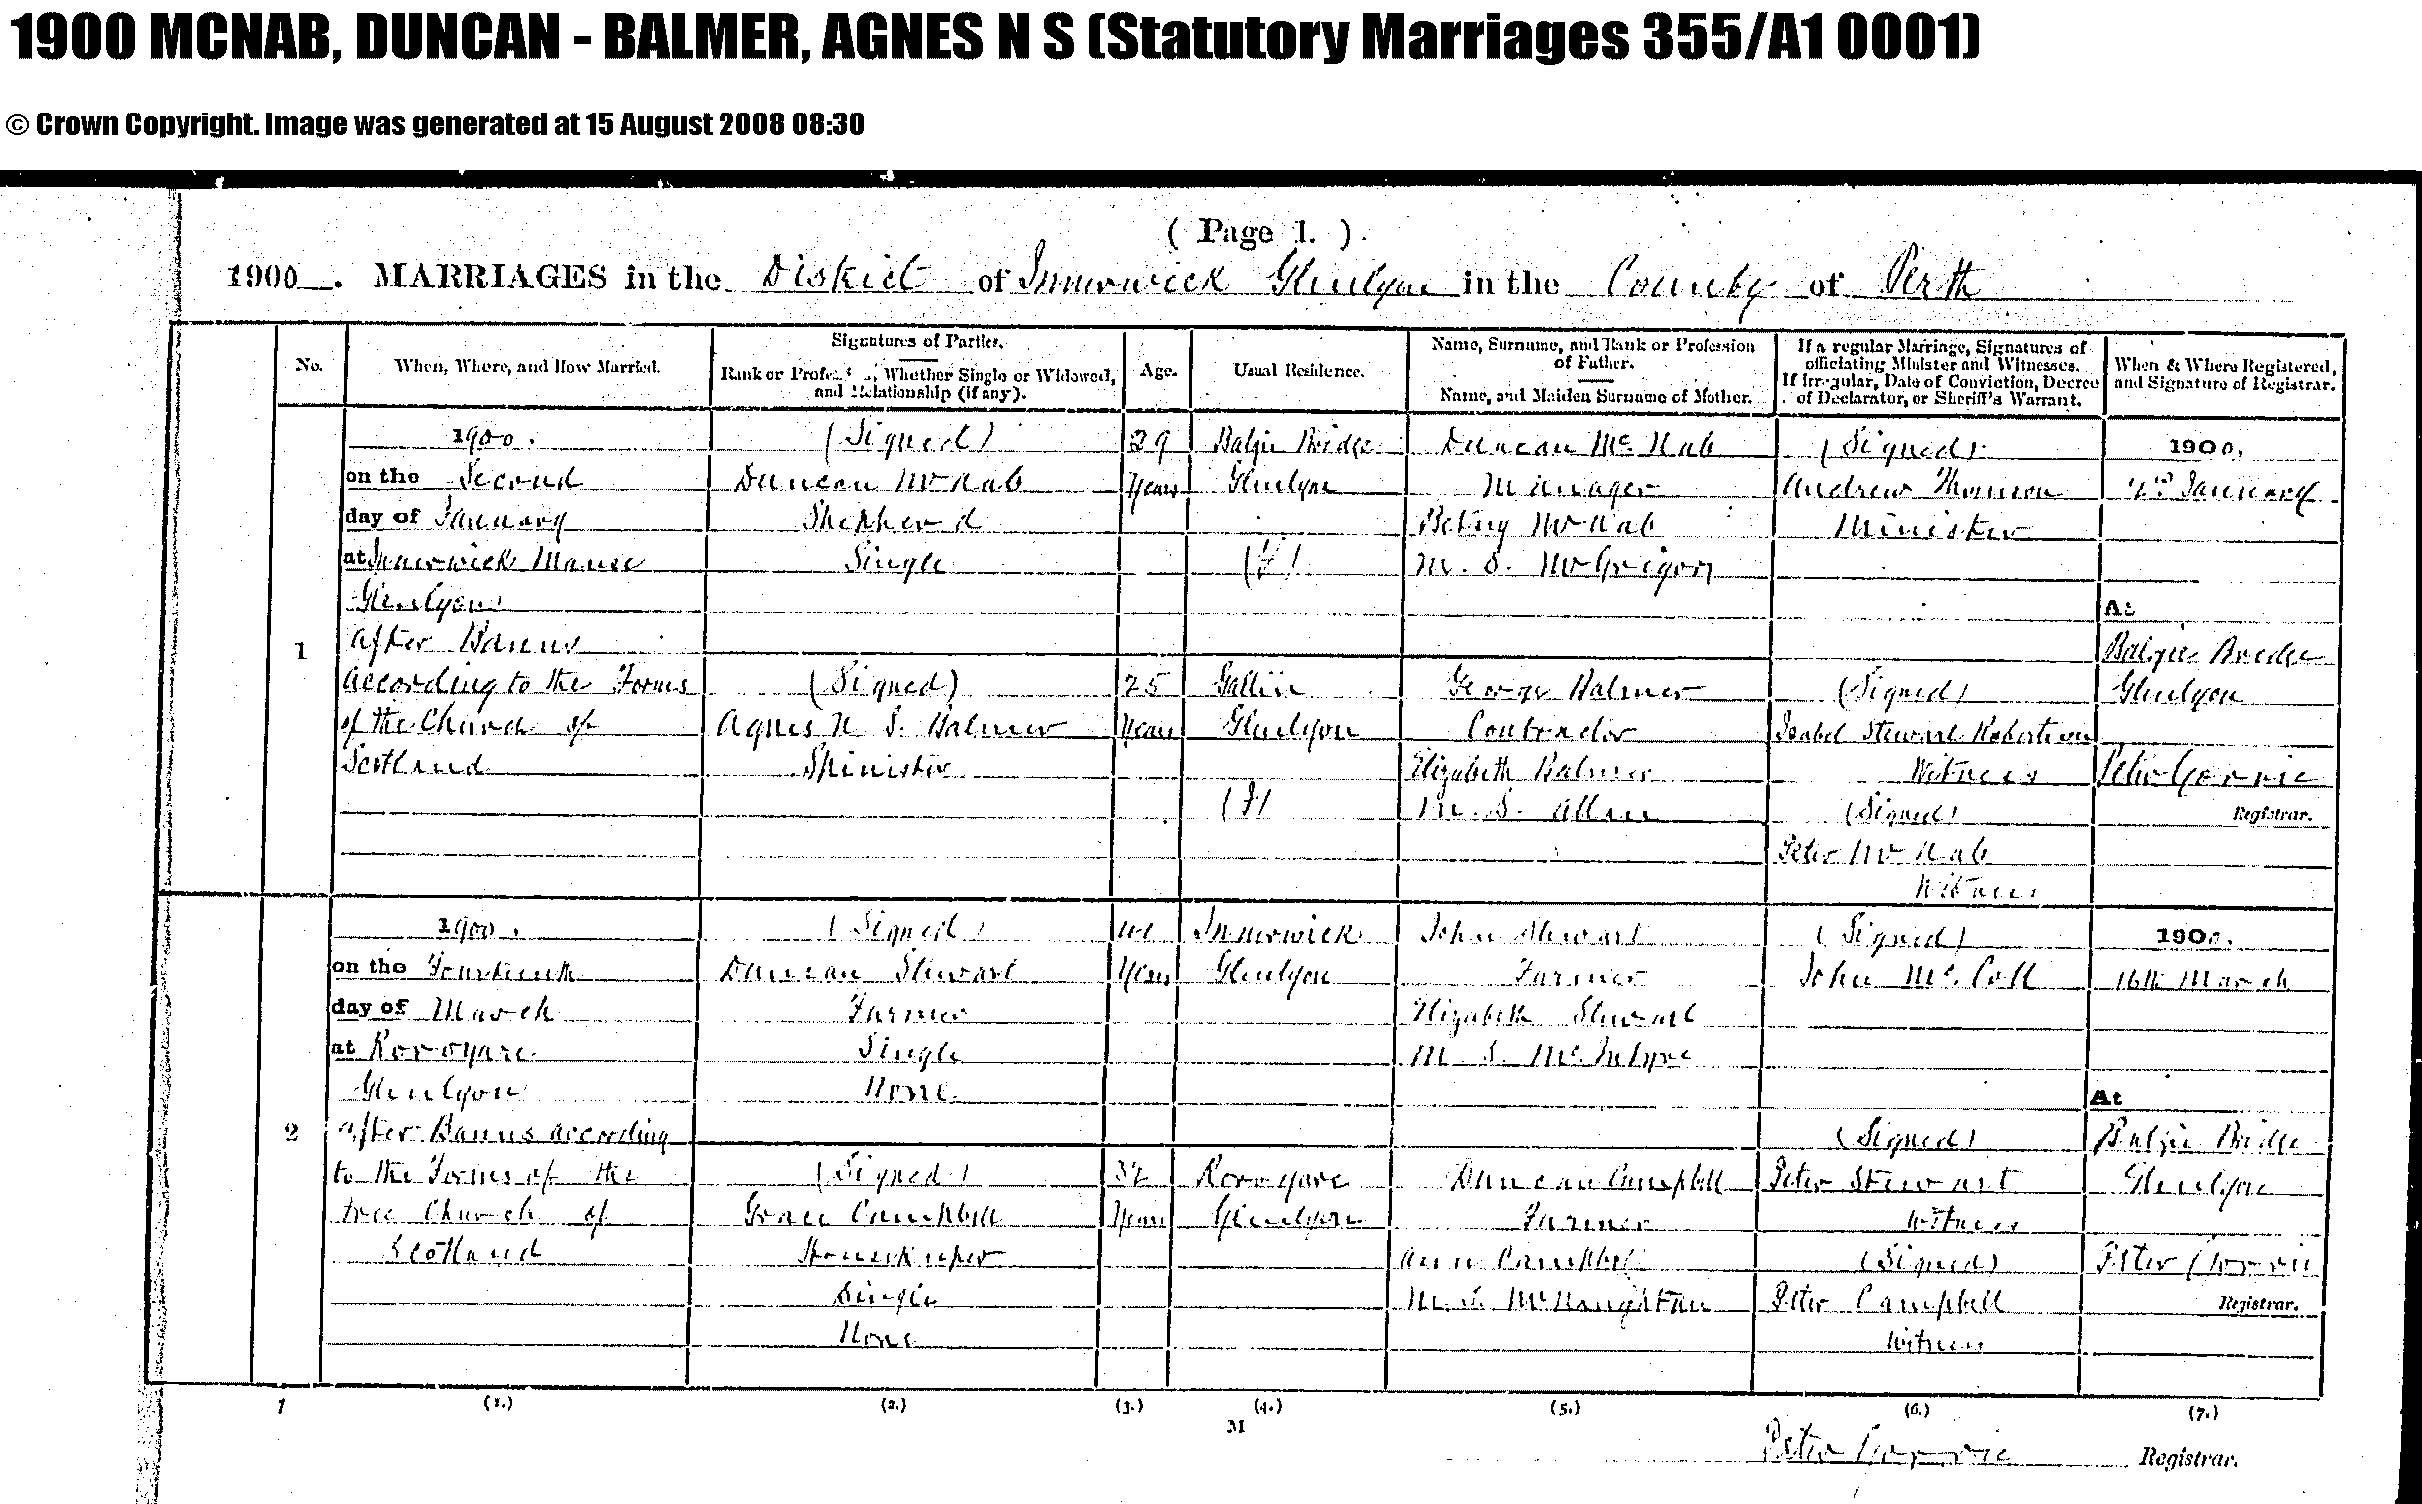 1900 MCNAB, DUNCAN - BALMER, AGNES N S (Statutory Marriages 355/A1 0001)
© Crown Copyright. Image was generated at 15 August 2008 08:30
( Page 1. )
1900. MARRIAGES in the District of Innerwick Glenlyon in the County of Perth
No.
When, Where, and How Married.
Signatures of Parties.
Rank or Profession, Whether Single or Widowed,
and Relationship (if any).
Age.
Usual Residence.
Name, Surname, and Rank or Profession
of Father.
Name, and Maiden Surname of Mother.
If a regular Marriage, Signatures of
officiating Minister and Witnesses.
If irregular, Date of Conviction, Decree
of Declarator, or Sheriff's Warrant.
When & Where Registered,
and Signature of Registrar.
1
1900.
on the Second
day of January
at Innerwick Manse
Glenlyon
after Banns
according to the Forms
of the Church of
Scotland
(Signed)
Duncan McNab
Shepherd
Single
(Signed)
Agnes N S. Balmer
Spinister
Years
25
Years
Balgie Bridge
Glenlyon
Gallin
Glenlyon
Duncan Mc. Nab
Manager
Betsy McNab
M. S. McGrigor
George Balmer
Contractor
Elizabeth Balmer
M. S. Allen
(Signed)
Andrew Thomson
Minister
(Signed)
Isabel Stewart Robertson
Witness
(Signed)
Peter McNab
Witness
1900.
January
At
Balgie Bridge
Glenlyon
Peter Gorrie
Registrar.
2
1900.
on the Fourteenth
day of March
at Roroyare
Glenlyon
after Banns according
to the Forms of the
Free Church of
Scotland
(Signed)
Duncan Stewart
Farmer
Single
None
(Signed)
Grace Campbell
Housekeeper
Single
None
Years
32
Years
Innerwick
Glenlyon
Roroyare
Glenlyon
John Stewart
Farmer
Elizabeth Stewart
M. S. Mc. Intyre
Duncan Campbell
Farmer
Ann Campbell
M. S. McNaughtan
(Signed)
John Mc. Coll
(Signed)
Peter Stewart
Witness
(Signed)
Peter Campbell
Witness
1900.
16th March
At
Balgie Bridge
Glenlyon
Peter Gorrie
Registrar.
1
(1.)
(2.)
(3.)
(4.)
(5.)
(6.)
(7.)
M
Peter Gorrie Registrar.